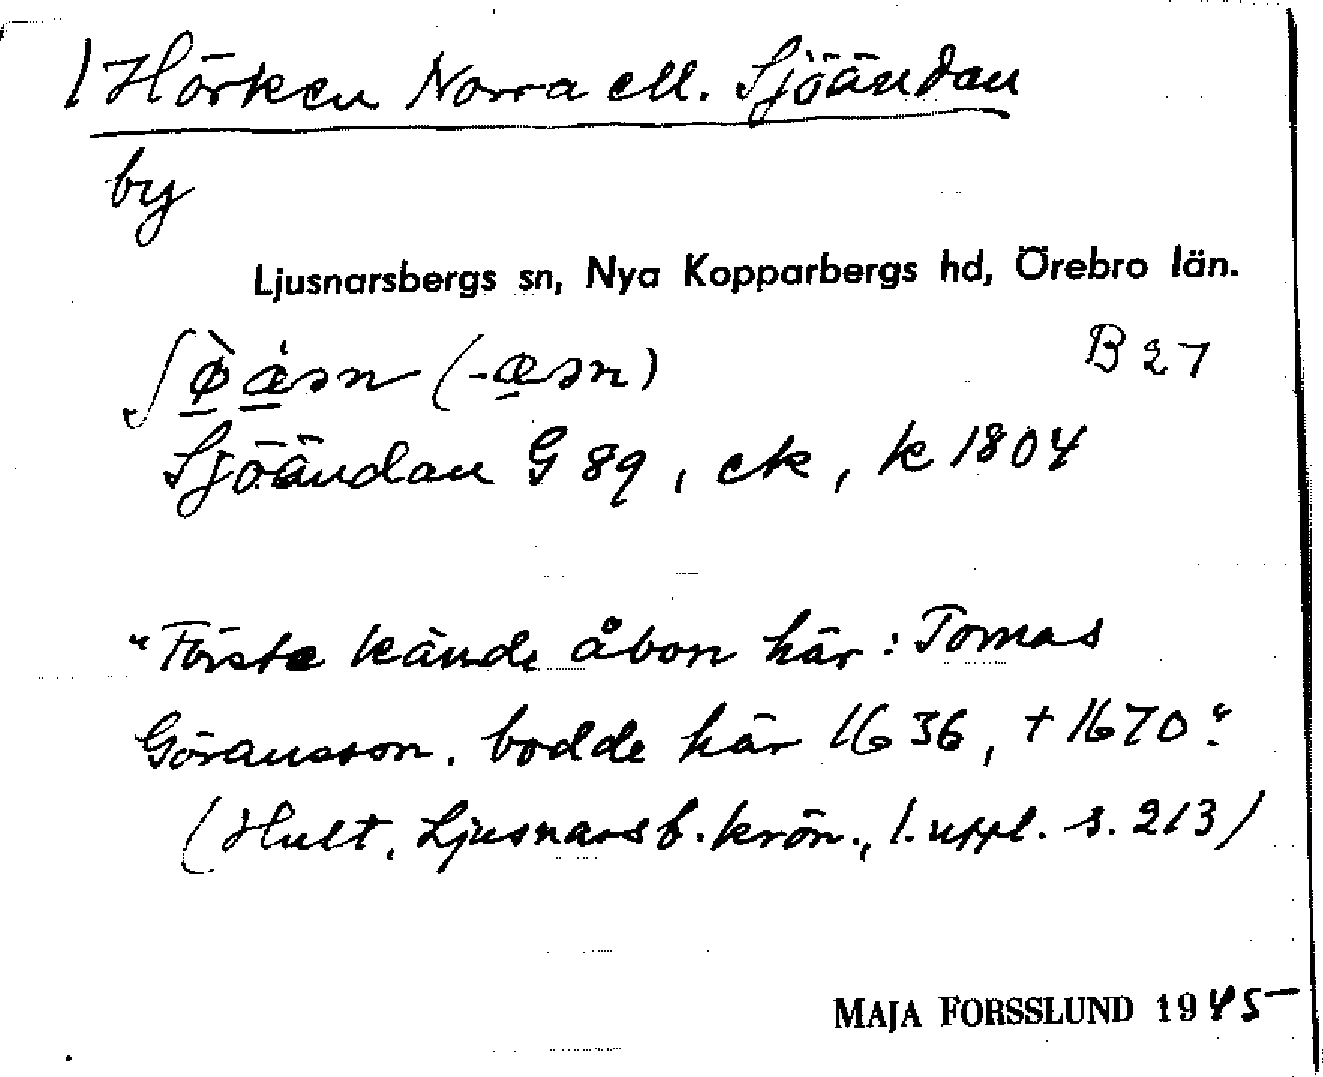 1 Hörken Norra ell. Sjöändan
by
Ljusnarsbergs sn, Nya Kopparbergs hd, Örebro län.
ʃø̠̀æ̠̍ən (-æ̠ən) B 27
Sjöändan G 89, ek, k 1804
"Förste kände åbon här: Tomas
Göransson, bodde här 1636, † 1670".
(Hult, Ljusnarsb. krön., 1. uppl. s. 213)
MAJA FORSSLUND 1945